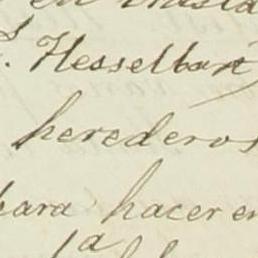 en
S. Hesselbart
herederos
para hacer en
1a